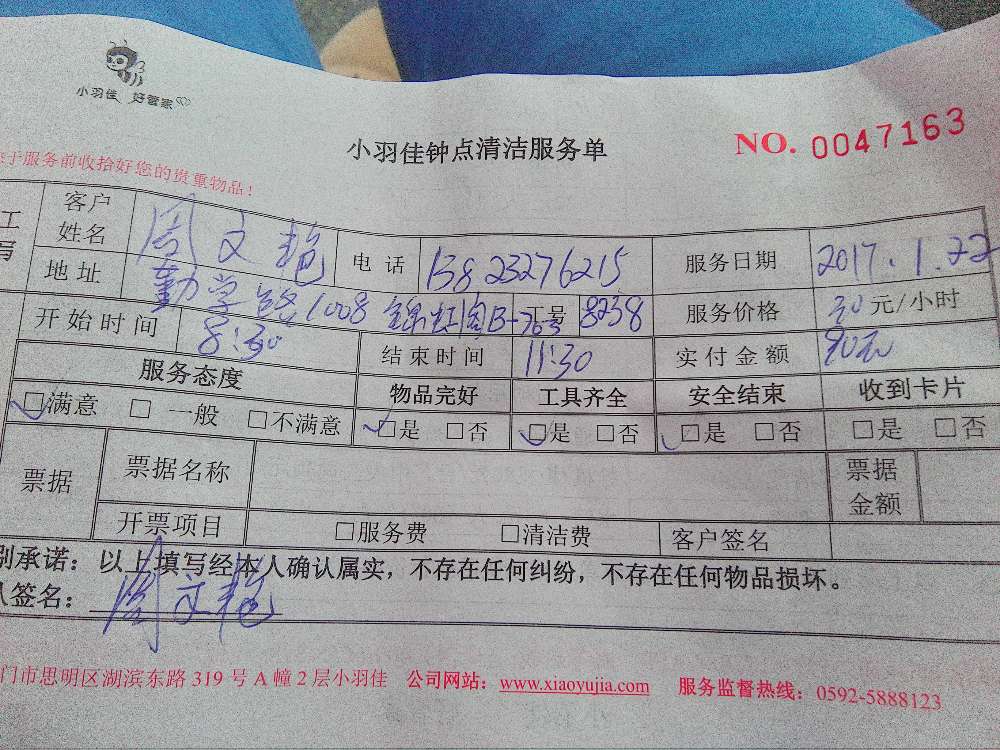 小羽佳 好管家
小羽佳钟点清洁服务单
NO. 0047163
于服务前收拾好您的贵重物品！
工 客户姓名 周文艳 电话 13823276215 服务日期 2017.1.22
写 地址 勤学路1008 锦虹阁B-703 工号 8238 服务价格 30元/小时
开始时间 8:30 结束时间 11:30 实付金额 90元
服务态度 物品完好 工具齐全 安全结束 收到卡片
□满意 □一般 □不满意 □是 □否 □是 □否 □是 □否 □是 □否
票据 票据名称 票据金额
开票项目 □服务费 □清洁费 客户签名
别承诺：以上填写经本人确认属实，不存在任何纠纷，不存在任何物品损坏。
人签名：周文艳
门市思明区湖滨东路 319 号 A 幢 2 层小羽佳 公司网站：www.xiaoyujia.com 服务监督热线：0592-5888123